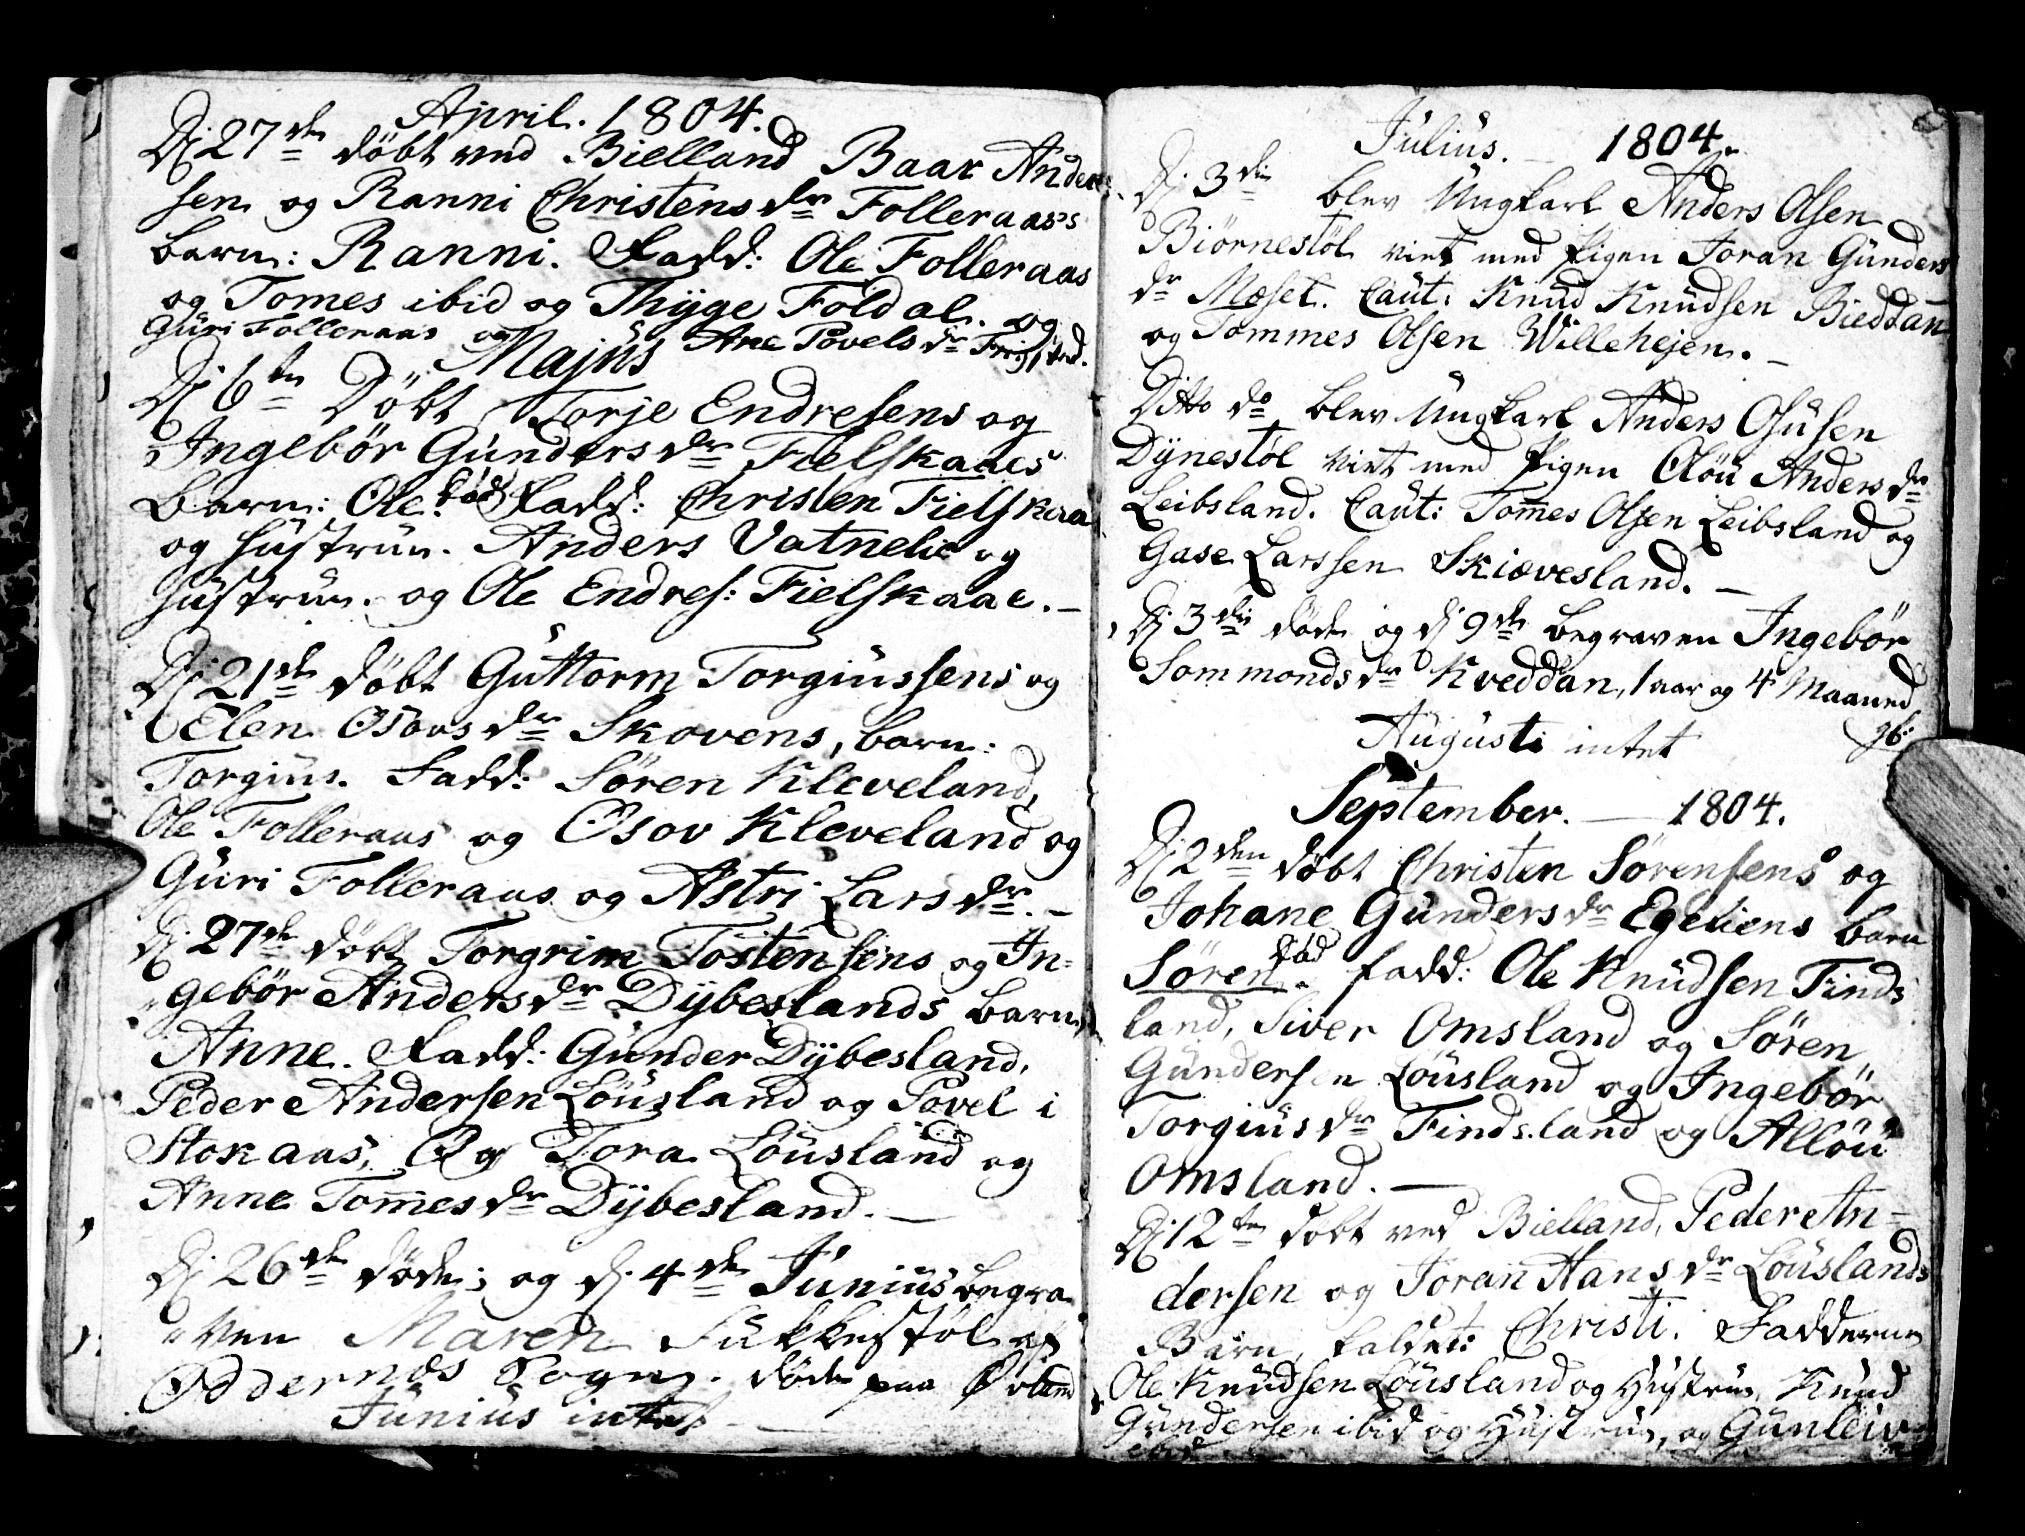 April. 1804.
Dj 27de døbt ved Bielland Baar Ander
sen og Ranni Christensdr Folleraas's
barn: Ranni. Fadd: Ole Folleraas
og Tomes ibid og Thÿge Foldal. og
Guri Folleraas og Ane Povelsdr
Majus
Dj 6te Døbt Torje Endresens og
Ingebör Gundersdr Fielskaaes
barn: Ole. død Fadd: Christen Fielskaa
og hustrue. Anders Vatnelie og
hustrue. og Ole Endres: Fielskaae. –
Dj 21de døbt Guttorm Torgiussens og
Elen Osovsdr Skovens, barn:
Torgius. Fadd: Sören Kleveland,
Ole Folleraas og Osov Kleveland og
Guri Folleraas og Astri Larsdr. –
Dj 27de døbt Torgrim Tostensens og In=
gebör Andersdr Dÿbeslands barn
Anne. Fadd: Gunder Dÿbesland,
Peder Andersen Löusland og Povel i
Stokaas, Og Tora Löusland og
Anne Tom̄esdr Dÿbesland. –
Dj 26de døde; og dj. 4de Junius begra
ven Maren Fukkestøl af
Oddernæs Sogn. døde paa Øvland
Junius intet –
Julius. – 1804.
Dj. 3die blev Ungkarl Anders Olsen
Biörnestöl viet med Pigen Joran Gunders
dr Moset. Caut: Knud Knudsen Bieddan
og Tommes Olsen Willehejen. –
Ditto do blev Ungkarl Anders Osusen
Dÿnestöl viet med Pigen Olöu Andersdr
Leibsland. Caut: Tom̄es Olsen Leibsland og
Gase Larssen Skiævesland. –
Dj 3die døde og dj 9de begraven Ingebör
Sommondsdr Kveddan, 1 aar og 4 Maaned
gl:
Augusti intet
September. – 1804.
Dj. 2den døbt Christen Sörensens og
Johane Gundersdr Egeliens barn
Sören. død fadd: Ole Knudsen Finds
land, Siver Omsland og Sören
Gundersen Löusland og Ingebör
Torgiusdr Findsland og Allöu
Omsland. –
Dj 12te døbt ved Bielland, Peder An=
dersen og Joran Hansdr Löuslands
Barn, kaldet: Christi. Fadderne
Ole Knudsen Löusland og Hustrue, Knud
Gundersen ibid og Hustrue, og Gunleiv